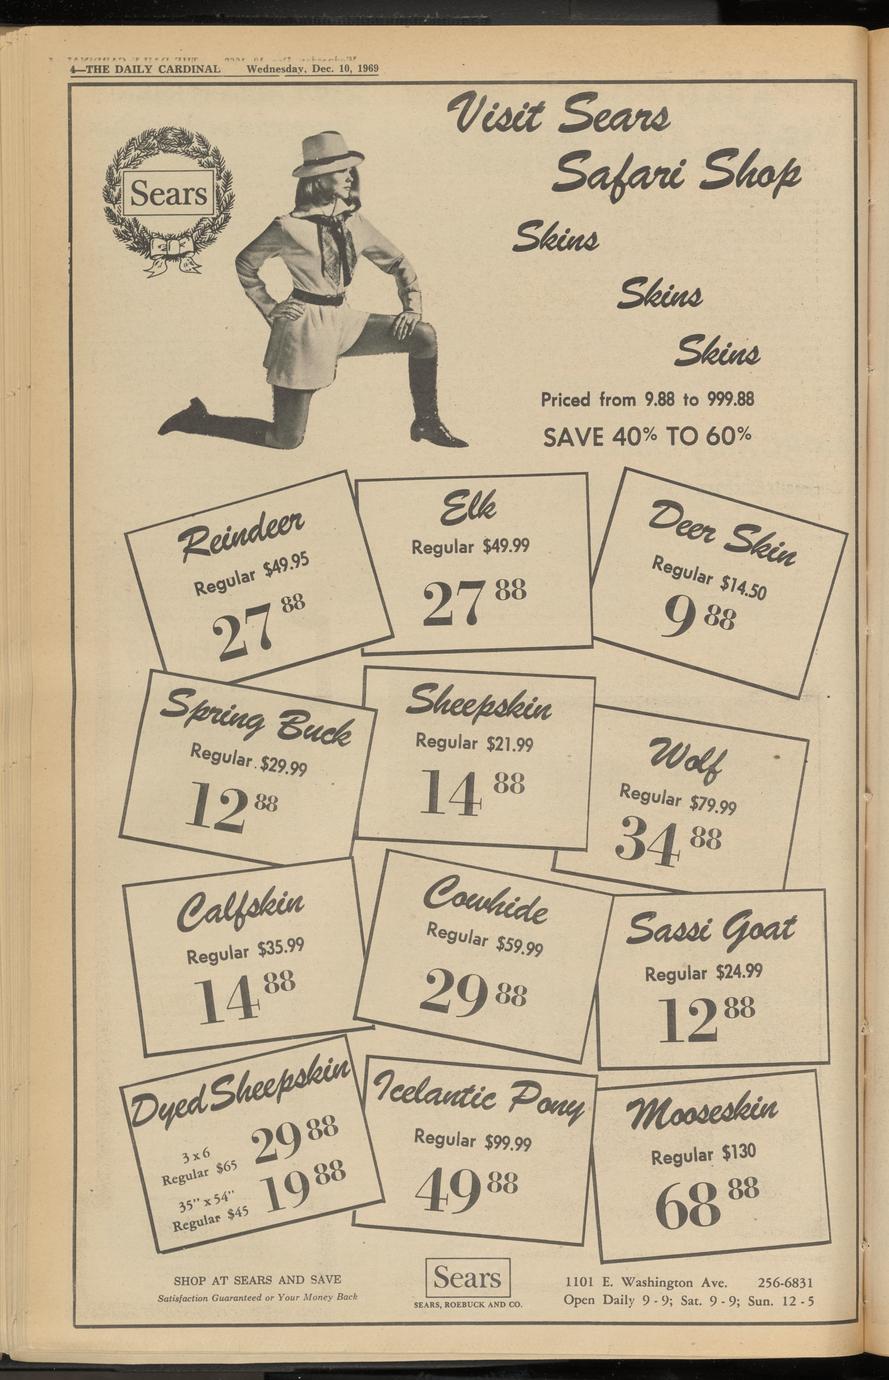 4—THE DAILY CARDINAL Wednesday, Dec. 10, 1969
Sears
Visit Sears
Safari Shop
Skins
Skins
Skins
Priced from 9.88 to 999.88
SAVE 40% TO 60%
Reindeer
Regular $49.95
27 88
Elk
Regular $49.99
27 88
Deer Skin
Regular $14.50
9 88
Spring Buck
Regular $29.99
12 88
Sheepskin
Regular $21.99
14 88
Wolf
Regular $79.99
34 88
Calfskin
Regular $35.99
14 88
Cowhide
Regular $59.99
29 88
Sassi Goat
Regular $24.99
12 88
Dyed Sheepskin
3 x 6
Regular $65
29 88
35" x 54"
Regular $45
19 88
Icelantic Pony
Regular $99.99
49 88
Mooseskin
Regular $130
68 88
SHOP AT SEARS AND SAVE
Satisfaction Guaranteed or Your Money Back
Sears
SEARS, ROEBUCK AND CO.
1101 E. Washington Ave. 256-6831
Open Daily 9 - 9; Sat. 9 - 9; Sun. 12 - 5